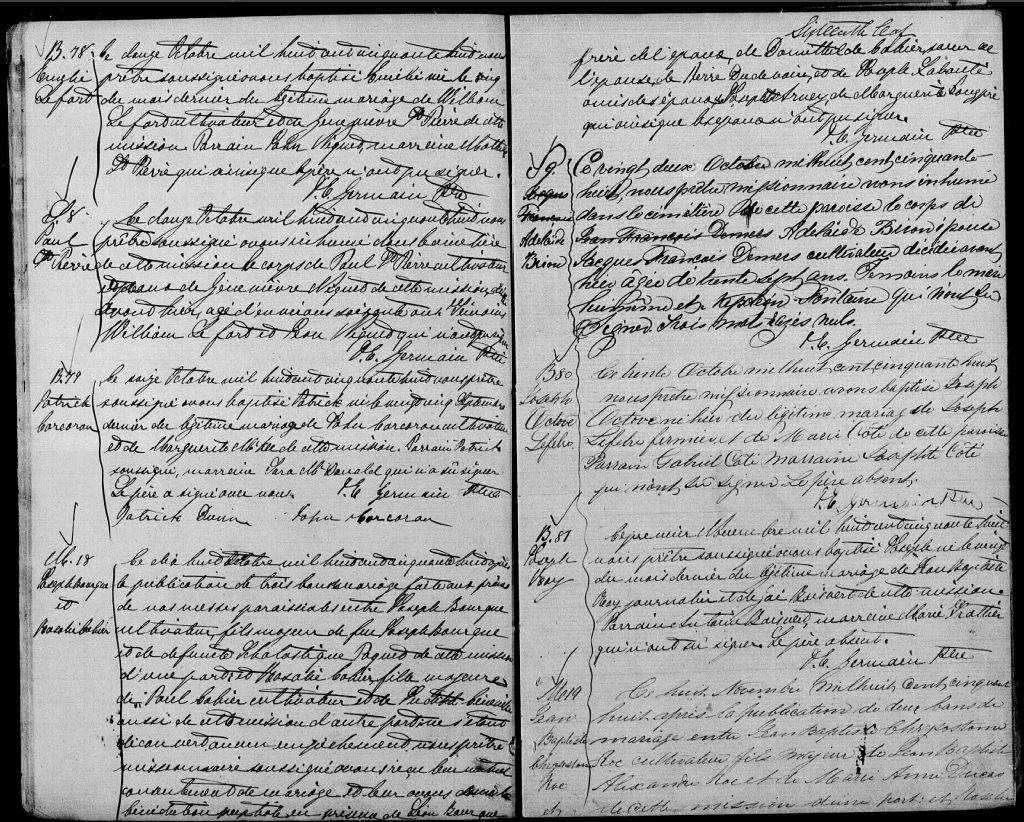 B. 78.
Le douze Octobre mil huit cent cinquante huit nous
prêtre soussigné avons baptisé né le cinq
Lefort du mois dernier du légitime mariage de William
Lefort cultivateur et de Geneviève St Pierre de cette
mission Parrain marreine
St Pierre qui ainsi que le père n'ont pu signer.
J. E. Germain Ptre
S. 8
Paul
St Pierre
Le douze Octobre mil huit cent cinquante huit nous
prêtre soussigné avons inhumé dans le cimetière
de cette mission le corps de Paul St Pierre cultivateur
époux de Geneviève de cette mission,
avant hier, agé d'environs soixante ans Témoins
William Lefort et qui n'ont pu signer
J. E. Germain Ptre
B. 79
Patrick
Corcoran
Le seize Octobre mil huit cent cinquante huit nous prêtre
soussigné avons baptisé Patrick né le vingt cinq Septembre
dernier du légitime mariage de John Corcoran cultivateur
et de Marguerite de cette mission. Parrain Patrick
soussigné, marreine Sara Mc Donald qui n'a sû signer
Le père a signé avec nous. J. E. Germain Ptre
Patrick John Corcoran
M. 18
Joseph Bourque
et
Rosalie Cahier
Le dix huit Octobre mil huit cent cinquante huit après
la publication de trois bans de mariage faite aux prônes
de nos messes paroissiales entre Joseph Bourque
cultivateur, fils majeur de feu Joseph Bourque
et de défunte Scholastique Paquet de cette mission
d'une part et Rosalie Cahier fille majeure
de Paul Cahier cultivateur et de
aussi de cette mission d'autre part, ne s'étant
découvert aucun empêchement, nous prêtre
missionnaire soussigné avons reçu leur mutuel
consentement de mariage et leur avons donné la
bénédiction nuptiale en présence de Léon Bourque
Sixteenth leaf
frère de l'époux, de Domithilde Cahier, soeur de
l'épouse, de Pierre et de Joseph Labonté
amis des époux, Joseph de Marguerite
qui ainsi que les époux n'ont pu signer.
J. E. Germain Ptre
S 9.
Adelaide
Brion
Ce vingt deux Octobre mil huit cent cinquante
huit, nous prêtre missionnaire avons inhumé
dans le cimetière de cette paroisse le corps de
Jean François Demers Adelaide Brion épouse
Jacques Francois Demers cultivateur décédée avant
hier âgée de trente sept ans. Témoins
et Fontaine qui n'ont su
signer Trois mots rayés nuls.
J. E. Germain Ptre
B 80
Joseph
Octave
Lefebre
Ce trente Octobre mil huit cent cinquante huit
nous prêtre missionnaire avons baptisé Joseph
Octave né hier du légitime mariage de Joseph
Lefebre fermier et de Marie Coté de cette paroisse
Parrain Gabriel Coté marraine Josephte Coté
qui n'ont su signer Le père absent.
J. E. Germain Ptre
B. 81
Joseph
Roy
Le premier Novembre mil huit cent cinquante huit
nous prêtre soussigné avons baptisé Joseph né le vingt
du mois dernier du légitime mariage de
Roy journalier et de Boisvert de cette mission
Parrain Boisvert, marreine Marie
qui n'ont sû signer. Le père absent.
J. E. Germain Ptre
M 19
Jean
Baptiste
Chrysostome
Roc
et
Ce huit Novembre mil huit cent cinquante
huit après la publication de deux bans de
mariage entre Jean Baptiste Chrysostome
Roc cultivateur fils majeur de Jean Baptiste
Alexandre Roc et de Marie Anne
de cette mission d'une part; et Rosalie